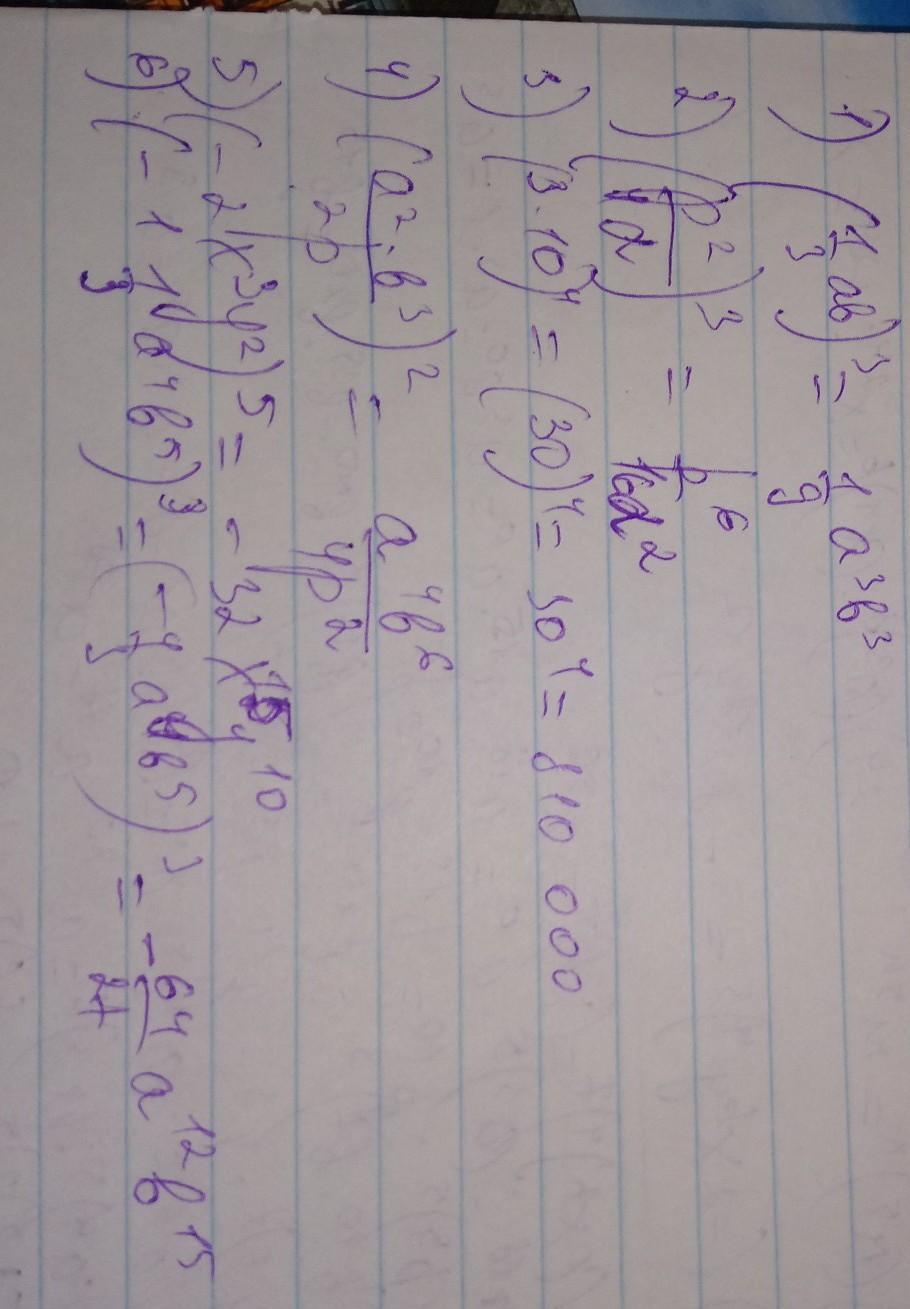 1) (1/3 ab)³ = 1/9 a³b³
2) (p²/4d)³ = p⁶/16d²
3) (3·10)⁴ = (30)⁴ = 30⁴ = 810 000
4) (a²·b³/2p)² = a⁴b⁶/4p²
5) (-2x³y²)⁵ = -32x¹⁵y¹⁰
6) (-1 1/3 a⁴b⁵)³ = (-4/3 a⁴b⁵)³ = -64/27 a¹²b¹⁵